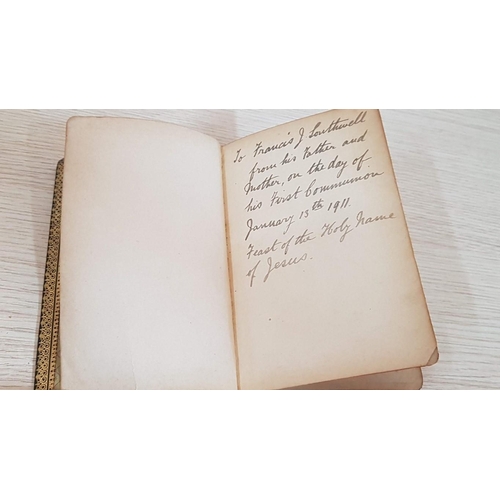 To Francis J Southwell
from his Father and
Mother, on the day of
his First Communion
January 15th 1911.
Feast of the Holy Name
of Jesus.